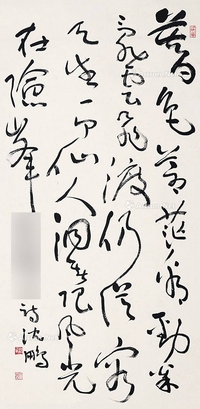 暮色苍茫看劲松
乱云飞渡仍从容
天生一个仙人洞无限风光
在险峰
诗沈鹏